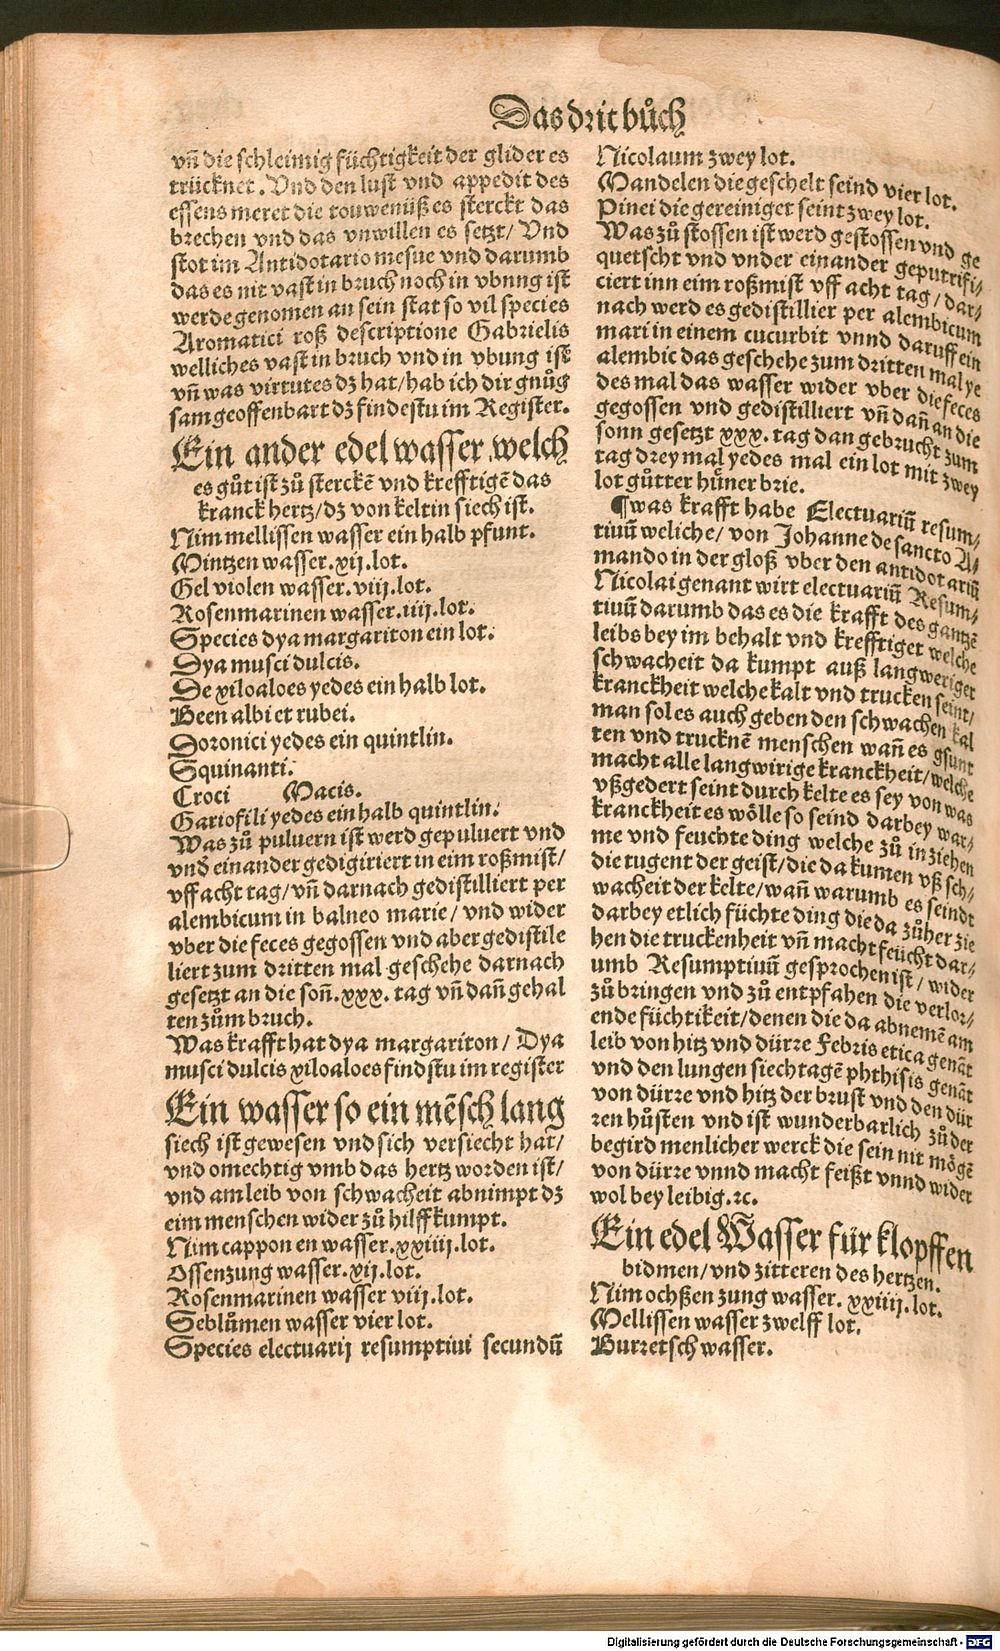 Das drit bůch
vñ die schleimig füchtigkeit der glider es
trücknet. Vnd den lust vnd appedit des
essens meret die rouwenüß es sterckt das
brechen vnd das vnwillen es setzt/ Vnd
stot im Antidotario mesue vnd darumb
das es nit vast in bruch noch in vbung ist
werde genomen an sein stat so vil species
Aromatici roß descriptione Gabrielis
welliches vast in bruch vnd in vbung ist
vñ was virtutes dz hat/hab ich dir gnůg
sam geoffenbart dz findestu im Register.
Ein ander edel wasser welch
es gůt ist zů sterckē vnd krefftigē das
kranck hertz/dz von keltin siech ist.
Nim mellissen wasser ein halb pfunt.
Mintzen wasser.xij.lot.
Gel violen wasser.viij.lot.
Rosenmarinen wasser.iiij.lot.
Species dya margariton ein lot.
Dya musci dulcis.
De xiloaloes yedes ein halb lot.
Been albi et rubei.
Doronici yedes ein quintlin.
Squinanti.
Croci Macis.
Gariofili yedes ein halb quintlin.
Was zů puluern ist werd gepuluert vnd
vnd einander gedigiriert in eim roßmist/
vff acht tag/vñ darnach gedistilliert per
alembicum in balneo marie/ vnd wider
vber die feces gegossen vnd aber gedistile
liert zum dritten mal geschehe darnach
gesetzt an die soñ.xxx. tag vñ dañ gehal
ten zům bruch.
Was krafft hat dya margariton/ Dya
musci dulcis xiloaloes findstu im register
Ein wasser so ein mēsch lang
siech ist gewesen vnd sich versiecht hat/
vnd omechtig vmb das hertz worden ist/
vnd am leib von schwacheit abnimpt dz
eim menschen wider zů hilff kumpt.
Nim cappon en wasser.xxiiij.lot.
Ossenzung wasser.xij.lot.
Rosenmarinen wasser viij.lot.
Seblůmen wasser vier lot.
Species electuarij resumptiui secundū
Nicolaum zwey lot.
Mandelen die geschelt seind vier lot.
Pinei die gereiniget seint zwey lot.
Was zů stossen ist werd gestossen vnd ge
quetscht vnd vnder einander geputrifi⸗
ciert inn eim roßmist vff acht tag/ dar⸗
nach werd es gedistillier per alembicum
mari in einem cucurbit vnnd daruff ein
alembic das geschehe zum dritten mal ye
des mal das wasser wider vber die feces
gegossen vnd gedistilliert vñ dañ an die
sonn gesetzt xxx. tag dan gebrucht zum
tag drey mal yedes mal ein lot mit zwey
lot gůtter hůner brie.
¶was krafft habe Electuariū resum⸗
tiuū weliche/ von Johanne de sancto A⸗
mando in der gloß vber den antidotariū
Nicolai genant wirt electuariū Resum⸗
tiuū darumb das es die krafft des gantzē
leibs bey im behalt vnd krefftiget welche
schwacheit da kumpt auß langweriger
kranckheit welche kalt vnd trucken seint/
man sol es auch geben den schwachen kal
ten vnd trucknē menschen wañ es gsunt
macht alle langwirige kranckheit/welche
vßgedert seint durch kelte es sey von was
kranckheit es wölle so seind darbey war⸗
me vnd feuchte ding welche zů in ziehen
die tugent der geist/die da kumen vß sch⸗
wacheit der kelte/wañ warumb es seindt
darbey etlich füchte ding die da zůher zie
hen die truckenheit vñ macht feücht dar⸗
umb Resumptiuū gesprochen ist/ wider
zů bringen vnd zů entpfahen die verlor⸗
ende füchtikeit/denen die da abnemē am
leib von hitz vnd dürre Febris etica genāt
vnd den lungen siechtagē phthisis genāt
von dürre vnd hitz der brust vnd den dür
ren hůsten vnd ist wunderbarlich zů der
begird menlicher werck die sein nit mögē
von dürre vnnd macht feißt vnnd wider
wol bey leibig.ꝛc.
Ein edel Wasser für klopffen
bidmen/vnd zitteren des hertzen.
Nim ochßen zung wasser. xxiiij.lot.
Mellissen wasser zwelff lot.
Burretsch wasser.
Digitalisierung gefördert durch die Deutsche Forschungsgemeinschaft - DFG